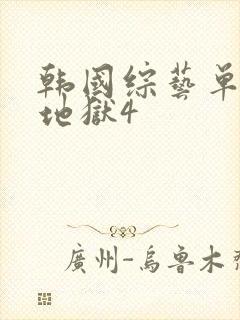 韩國综藝单
地獄4
廣州-烏鲁木